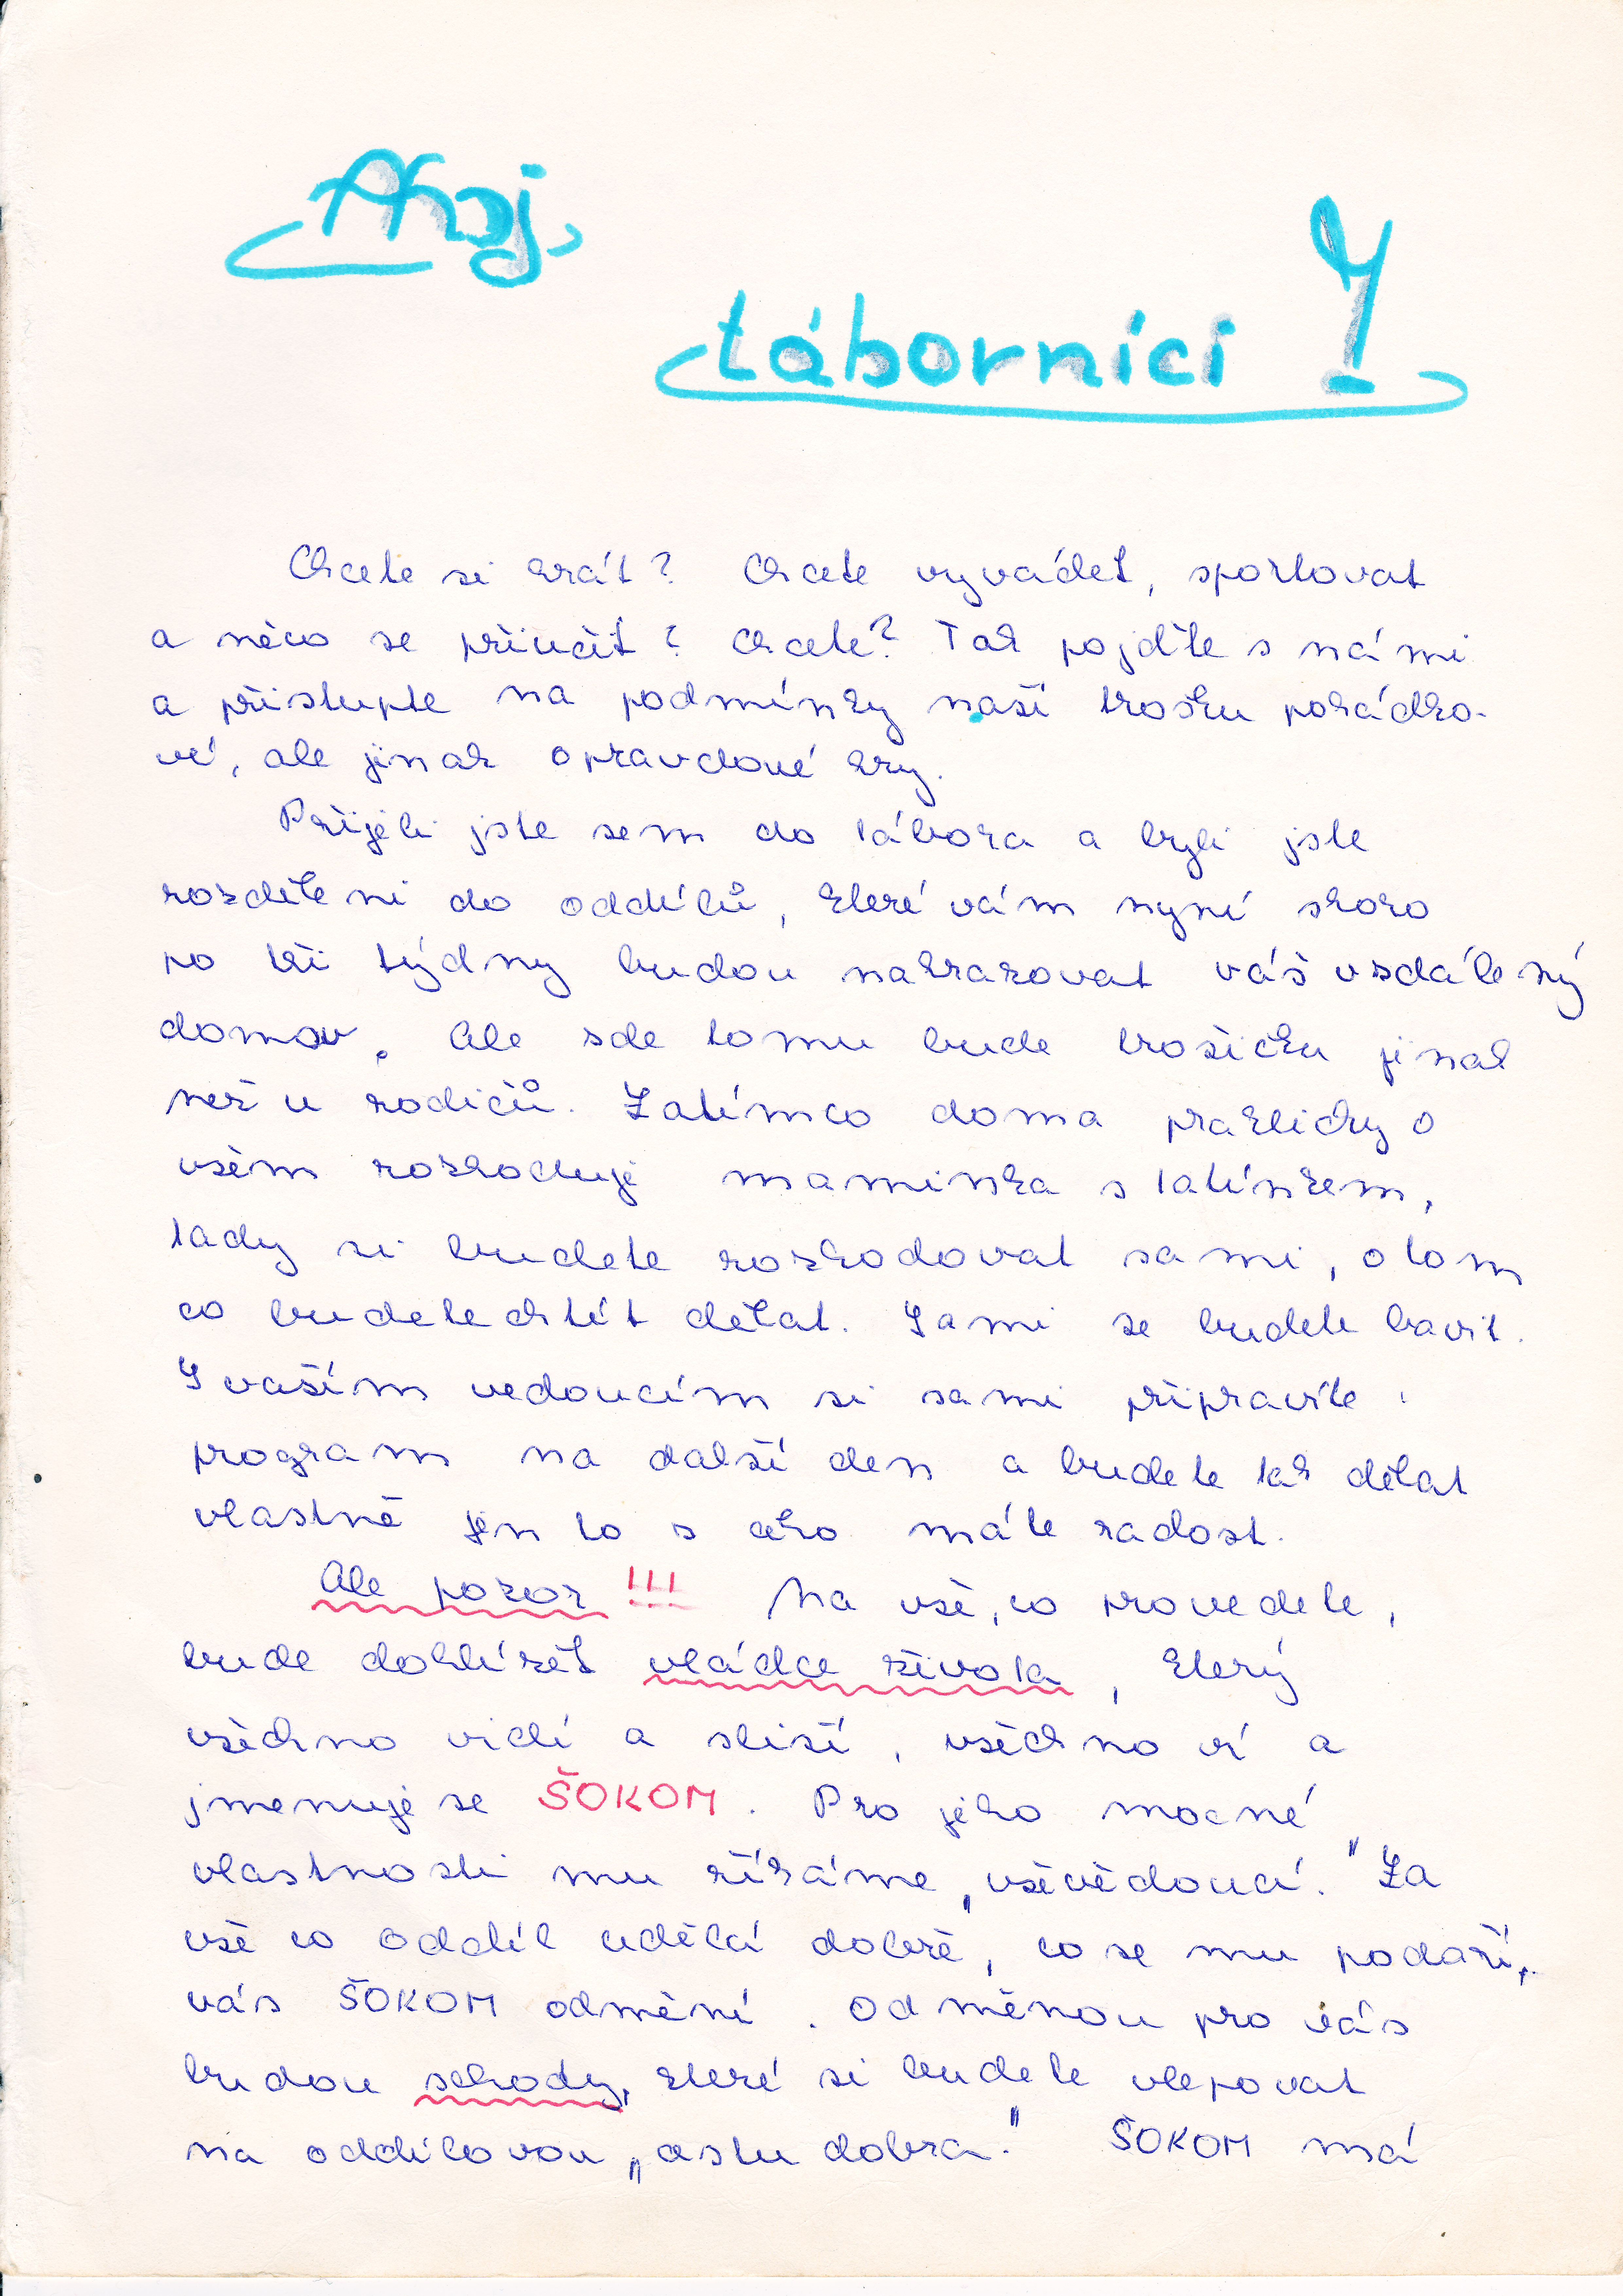 Ahoj,
táborníci!
Chcete si hrát? Chcete vyvádět, sportovat
a něco se přiučit? Chcete? Tak pojďte s námi
a přistupte na podmínky naší trošku pohádko-
vé, ale jinak opravdové hry.
Přijeli jste sem do tábora a byli jste
rozděleni do oddílů, které vám nyní skoro
po tři týdny budou nahrazovat váš vzdálený
domov. Ale zde tomu bude trošičku jinak
než u rodičů. Zatímco doma prakticky o
všem rozhoduje maminka s tatínkem,
tady si budete rozhodovat sami, o tom
co budete chtít dělat. Sami se budete bavit.
S vaším vedoucím si sami připravíte
program na další den a budete tak dělat
vlastně jen to s čeho máte radost.
Ale pozor!!! Na vše, co provedete,
bude dohlížet vládce života, který
všechno vidí a sliší, všechno ví a
jmenuje se ŠOKOM. Pro jeho mocné
vlastnosti mu říkáme „vševědoucí." Za
vše co oddíl udělá dobře, co se mu podaří,
vás ŠOKOM odmění. Odměnou pro vás
budou schody, které si budete vlepovat
na oddílovou „cestu dobra." ŠOKOM má